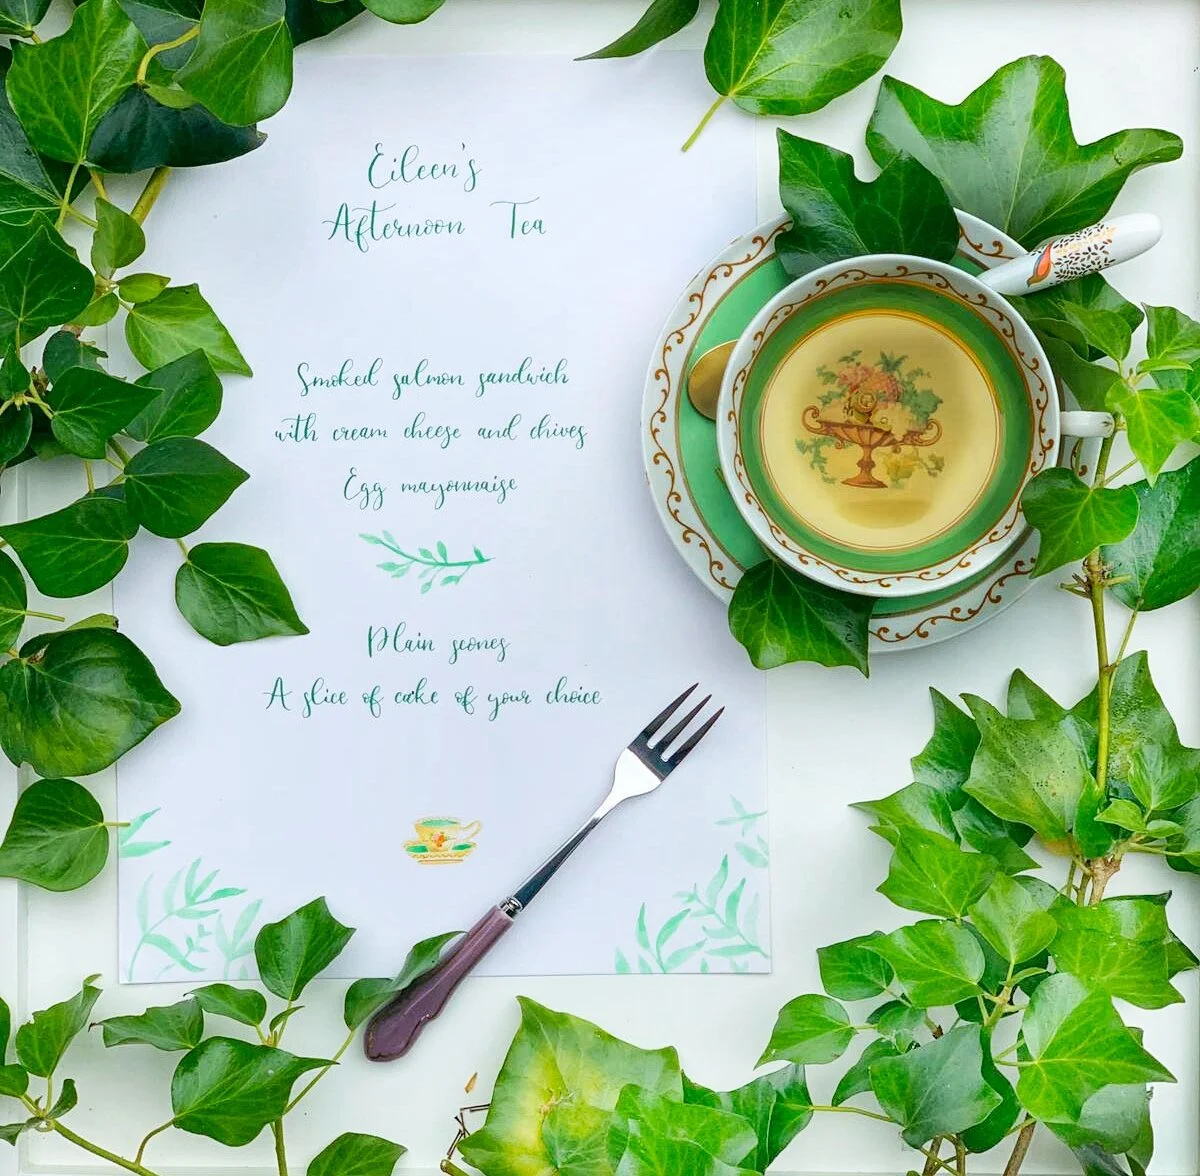 Eileen's
Afternoon Tea
Smoked salmon sandwich
with cream cheese and chives
Egg mayonnaise
Plain scones
A slice of cake of your choice